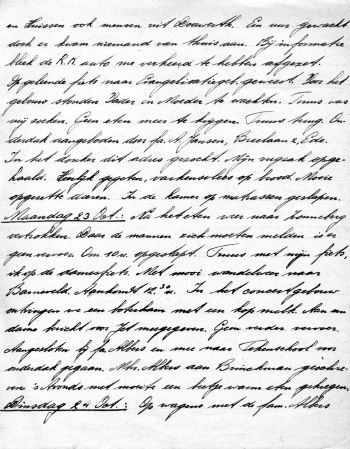 en Huissen ook mensen uit Doorwerth. Een uur gewacht
doch er kwam niemand van thuis aan. Bij informatie
bleek de R.K. auto me verkeerd te hebben afgezet.
Op geleende fiets naar Evangelisatiegeb. geweest. Voor het
gebouw stonden Vader en Moeder te wachten. Truus was
mij zoeken. Geen eten meer te krijgen. Truus terug. On-
derdak aangeboden door fa. A. Jansen, Breelaan 2, Ede.
In het donker dit adres gezocht. Mijn rugzak opge-
haald. Heerlijk gegeten, varkensvlees op brood. Mooie
opgezette dieren. In de kamer op matrassen geslapen.
Maandag 23 Oct.: Na het eten weer naar Zonneberg
vertrokken. Daar de mannen zich moeten melden is er
geen vervoer. Om 10 u. opgestapt. Truus met mijn fiets,
ik op de damesfiets. Met mooi wandelweer naar
Barneveld. Aankomst 12.30 u. In het concertgebouw
ontvingen we een boterham met een kop melk. Aan een
dame bericht voor Jet meegegeven. Geen verder vervoer.
Aangesloten bij fa. Albers en mee naar Tekenschool voor
onderdak gegaan. Mevr. Albers aan Brinckman geschre-
ven. 's Avonds met moeite een beetje warm eten gekregen.
Dinsdag 24 Oct.: Op wagens met de fam. Albers